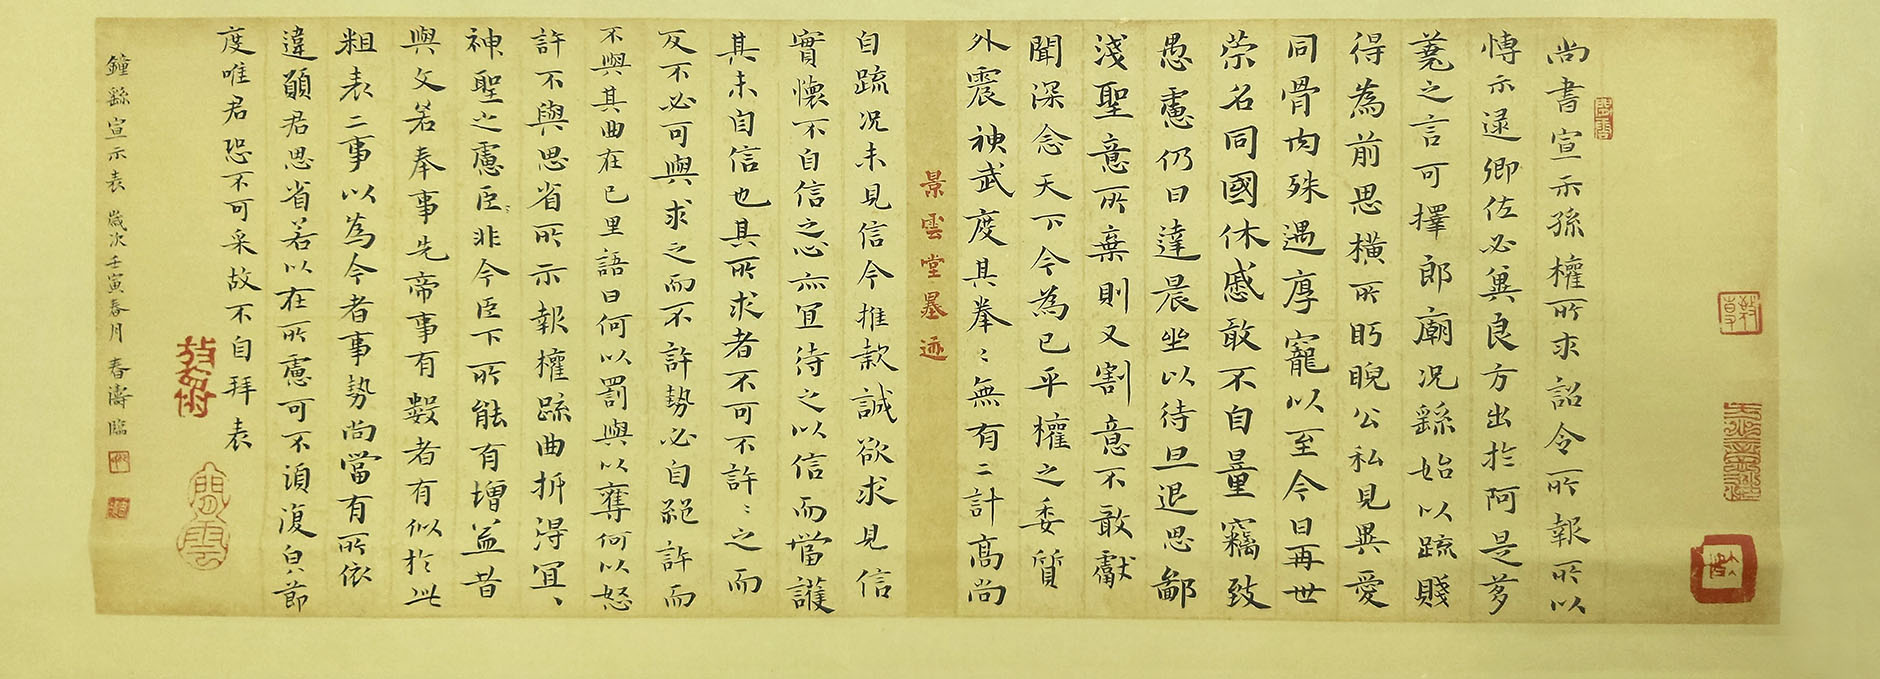 尚書宣示孫權所求詔令所報所以
愽示逯卿佐必兾良方出於阿是芻
蕘之言可擇郎廟况繇始以疏賤
得為前思橫所眄睨公私見異愛
同骨肉殊遇厚寵以至今日再世
荣名同國休慼敢不自量竊致
愚慮仍日達晨坐以待旦退思鄙
淺聖意所棄則又割意不敢獻
聞深念天下今為已平權之委質
外震神武度其拳〻無有二計高尚
景雲堂墨迹
自疏况未見信今推款誠欲求見信
實懷不自信之心亦宜待之以信而當護
其未自信也其所求者不可不許〻之而
反不必可與求之而不許勢必自絕許而
不與其曲在己里語曰何以罰與以奪何以怒
許不與思省所示報權疏曲折得宜〻
神聖之慮臣非今臣下所能有增益昔
與文若奉事先帝事有數者有似於此
粗表二事以為今者事勢尚當有所依
違願君思省若以在所慮可不須復皃節
度唯君恐不可采故不自拜表
鐘繇宣示表 歲次壬寅春月 春濤臨